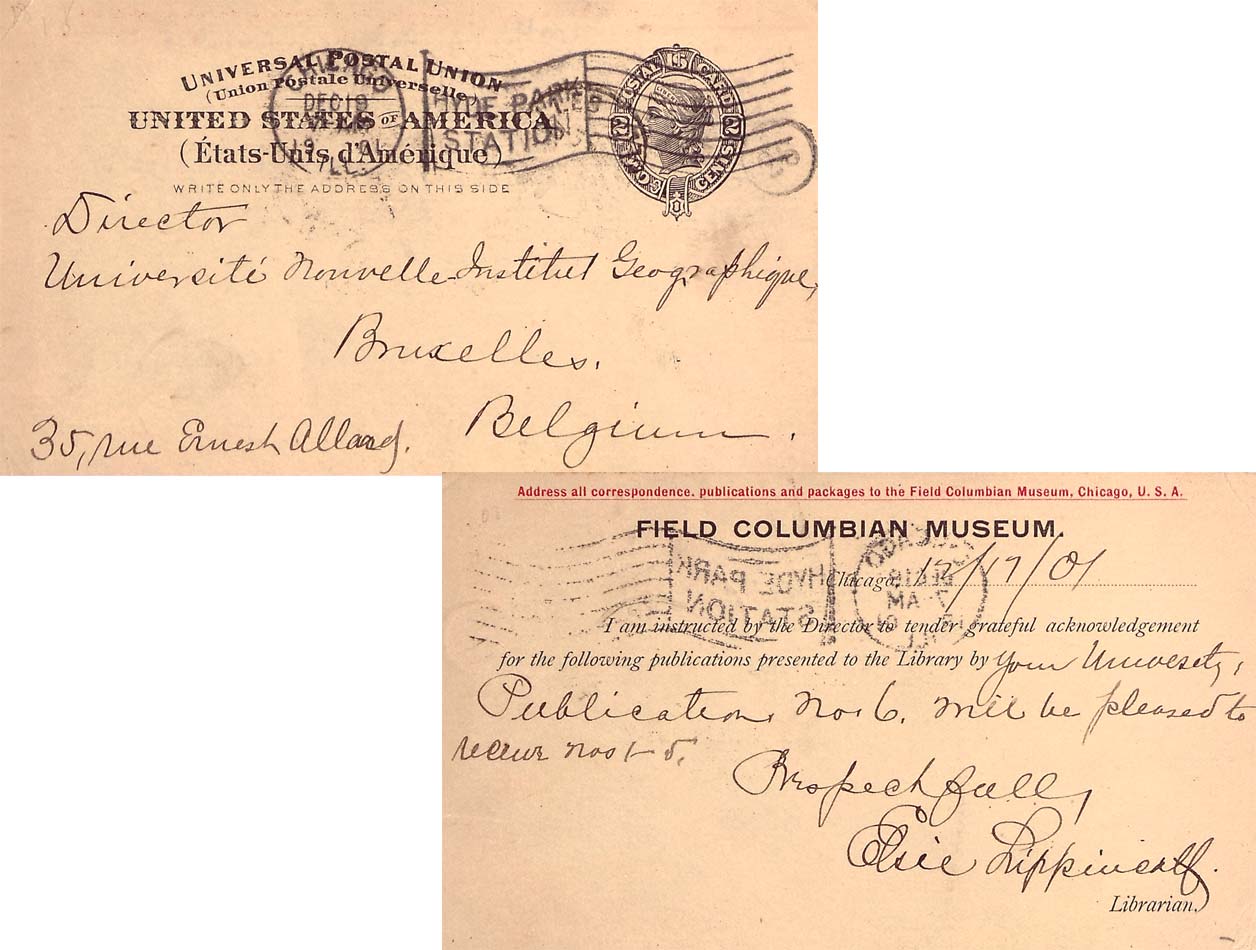 UNIVERSAL POSTAL UNION
(Union Postale Universelle)
UNITED STATES OF AMERICA
(États-Unis d'Amérique)
WRITE ONLY THE ADDRESS ON THIS SIDE
CHICAGO
DEC 19
ILL.
HYDE PARK
STATION
POSTAL CARD
TWO CENTS
Director
Université Nouvelle-Institut Geographique,
Bruxelles.
35, rue Ernest Allard. Belgium.
Address all correspondence, publications and packages to the Field Columbian Museum, Chicago, U. S. A.
FIELD COLUMBIAN MUSEUM.
HYDE PARK
STATION
Chicago, 12/17/01
I am instructed by the Director to tender grateful acknowledgement
for the following publications presented to the Library by your University,
Publication, No. 6. Will be pleased to
receive nos 1-5.
Respectfully
Elsie Lippincott
Librarian.